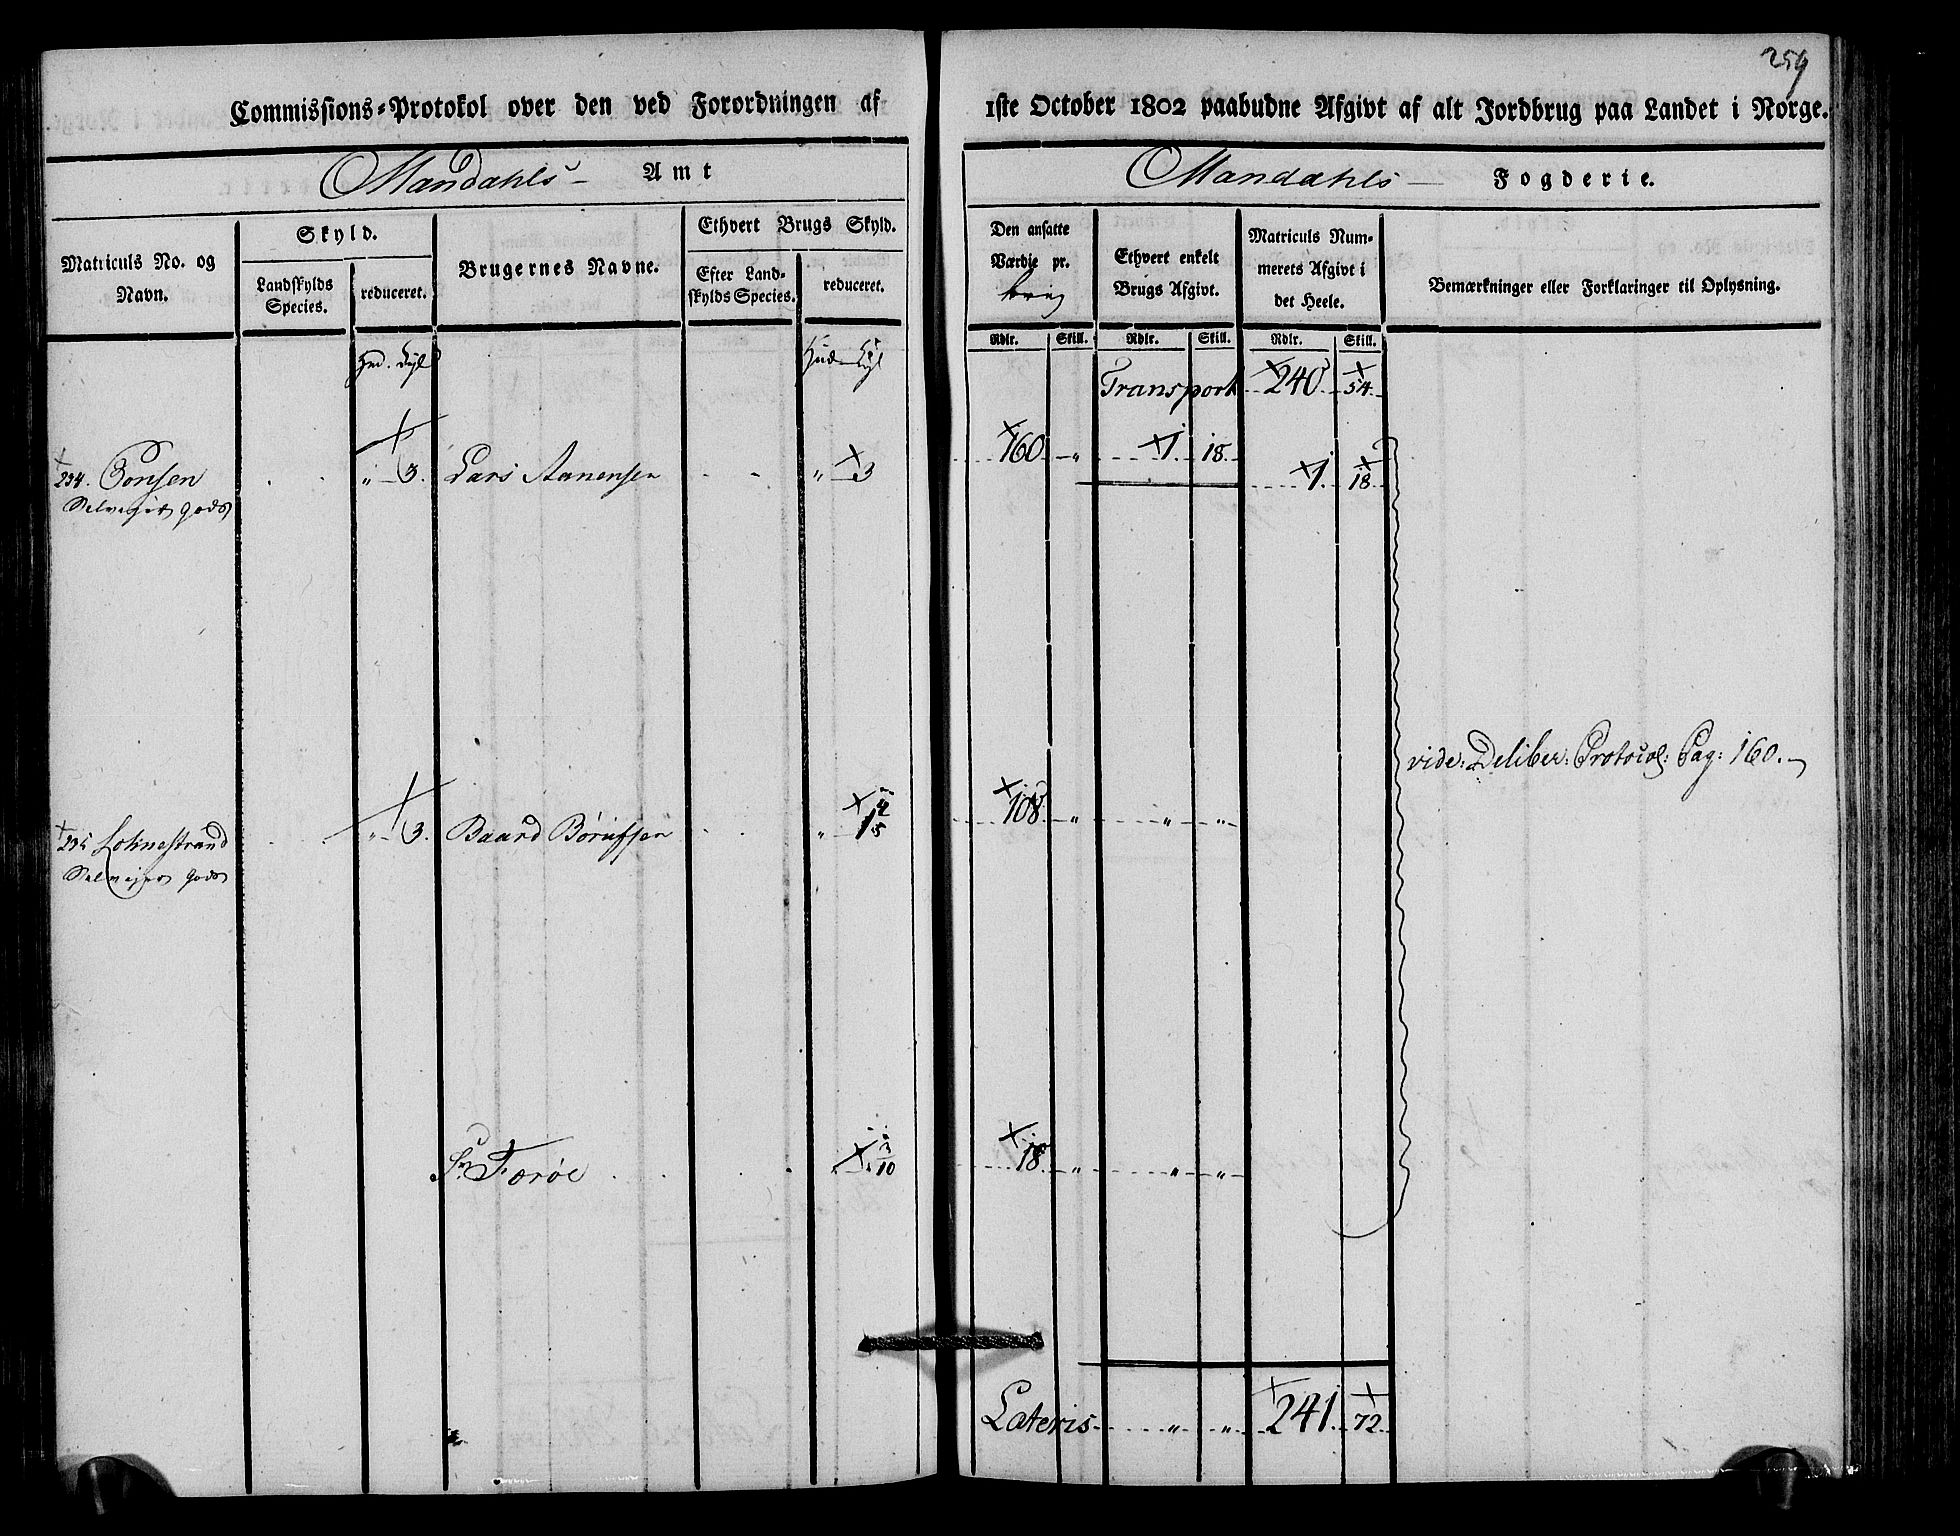 259
Commissions=Protokol over den ved Forordningen af 1ste October 1802 paabudne Afgivt af alt Jordbrug paa Landet i Norge.
Mandahls Amt
Mandahls Fogderie.
Matriculs No. og Navn.
Skyld.
Landskylds Species.
reduceret.
Brugernes Navne.
Ethvert Brugs Skyld.
Efter Landskylds Species.
reduceret.
Den ansatte Værdie pr.
Ethvert enkelt Brugs Afgivt.
Matriculs Nummerets Afgivt i det Heele.
Bemærkninger eller Forklaringer til Oplysning.
Rdlr. Skill. Rdlr. Skill. Rdlr. Skill.
Transport 240 54
234. Tonsen " 3. Lars Aanensen " 3 160 " 1 18 1 18
Selveyer gods
vide: Deliber: Protocol: Pag: 160.
235 Lohnestrand " 3. Baard 108 " " "
Selveyer gods
Færøe 3/10 18 " " "
Lateris " " 241 72